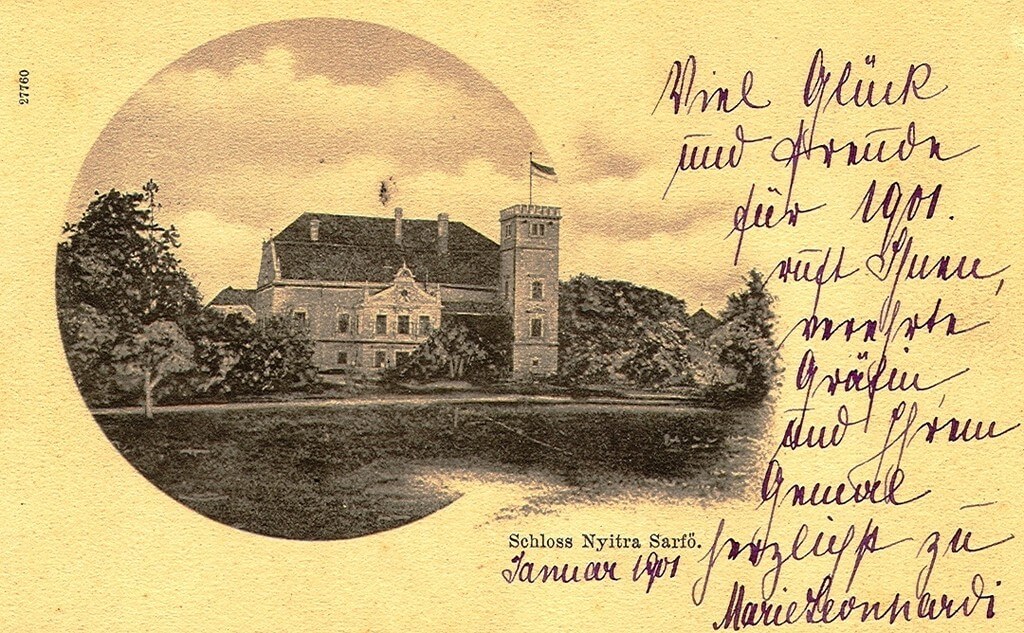 27760
Viel Glück
und Freude
für 1901.
ruft Ihnen,
verehrte
Gräfin
und Ihrem
Gemal
herzlichst zu
Marie Leonhardi
Schloss Nyitra Sarfö.
Januar 1901